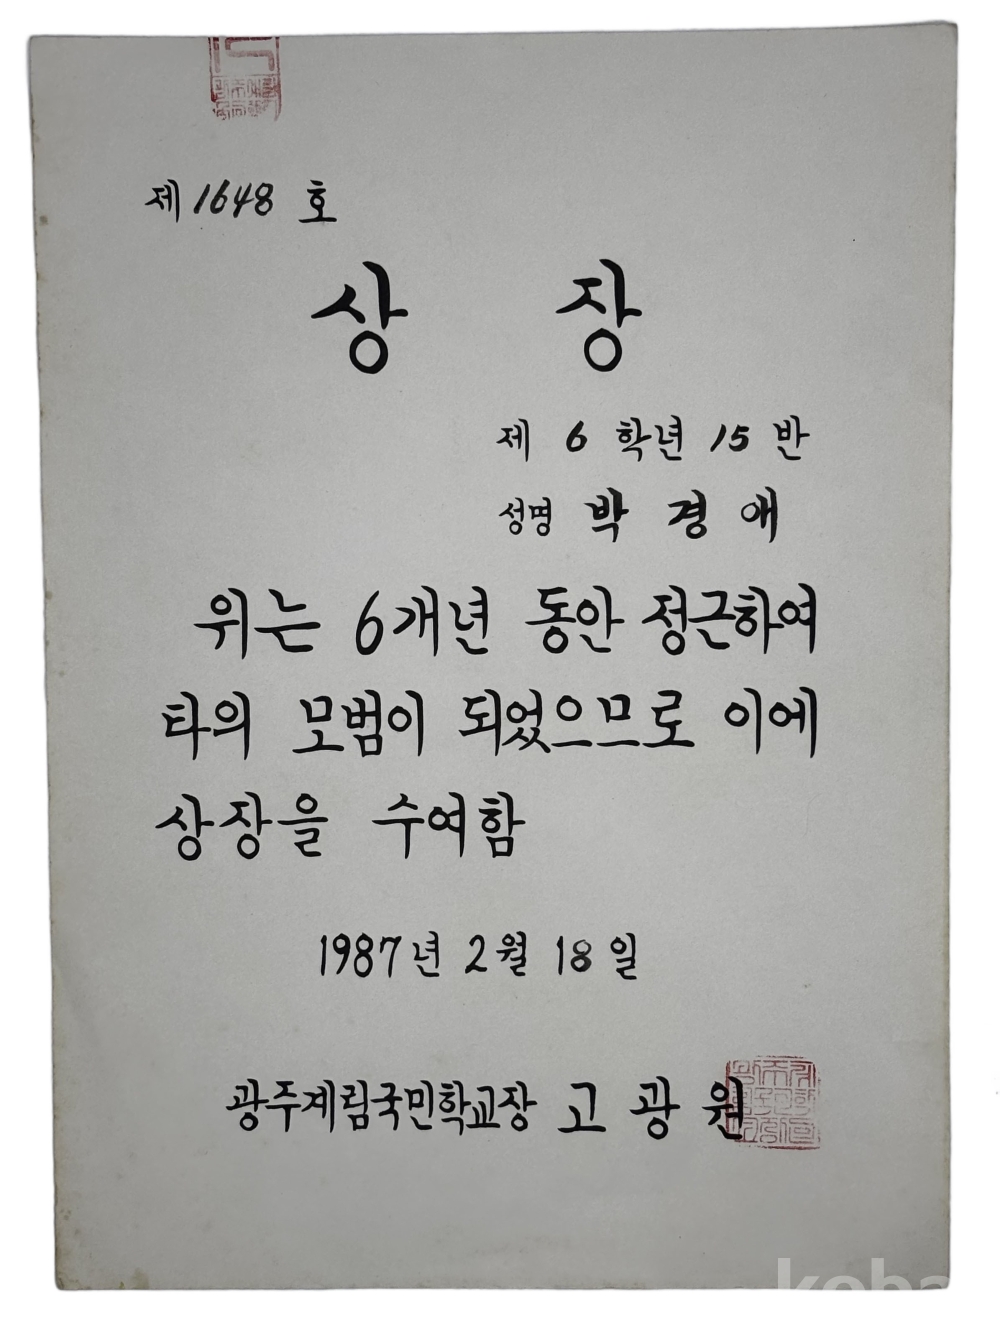 제 1648 호
상 장
제 6 학년 15 반
성명 박 경 애
위는 6개년 동안 정근하여
타의 모범이 되었으므로 이에
상장을 수여함
1987년 2월 18일
광주계림국민학교장 고 광 원